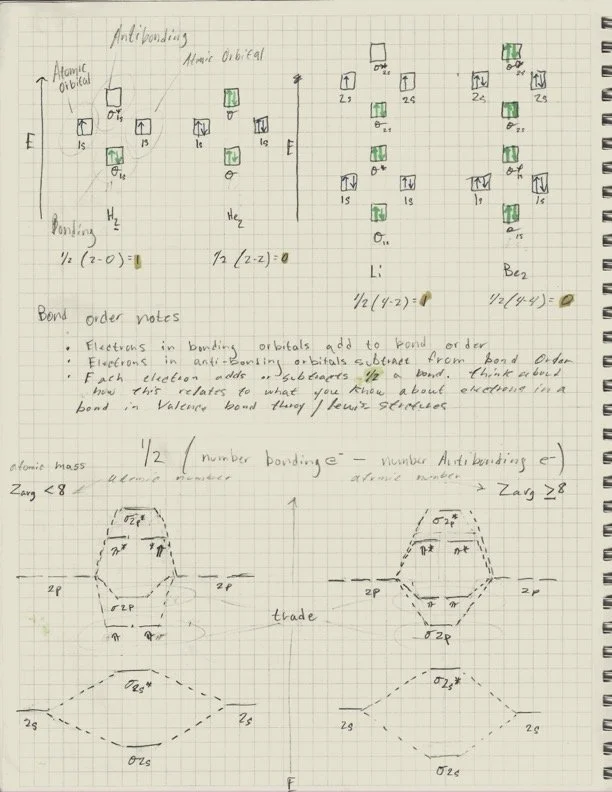 Antibonding
Atomic Orbital
Atomic Orbital
E
σ*1s
1s
1s
σ1s
H2
Bonding
1/2 (2-0) = 1
σ
1s
1s
σ
He2
1/2 (2-2) = 0
E
σ*2s
2s
2s
σ2s
σ*
1s
1s
σ1s
Li
1/2 (4-2) = 1
2s
2s
σ2s
1s
1s
Be2
1/2 (4-4) = 0
Bond order notes
• Electrons in bonding orbitals add to bond order
• Electrons in anti-bonding orbitals subtract from bond Order
• Each electron adds or subtracts 1/2 a bond. Think about
how this relates to what you know about electrons in a
bond in Valence bond theory / lewis
1/2 (number bonding e⁻ - number Antibonding e⁻)
atomic mass
Zavg < 8
atomic number
atomic number
Zavg ≥ 8
σ2p*
π* π*
2p
2p
σ2p
π π
σ2s*
2s
2s
σ2s
trade
E
σ2p*
π* π*
2p
2p
π π
σ2p
σ2s*
2s
2s
σ2s